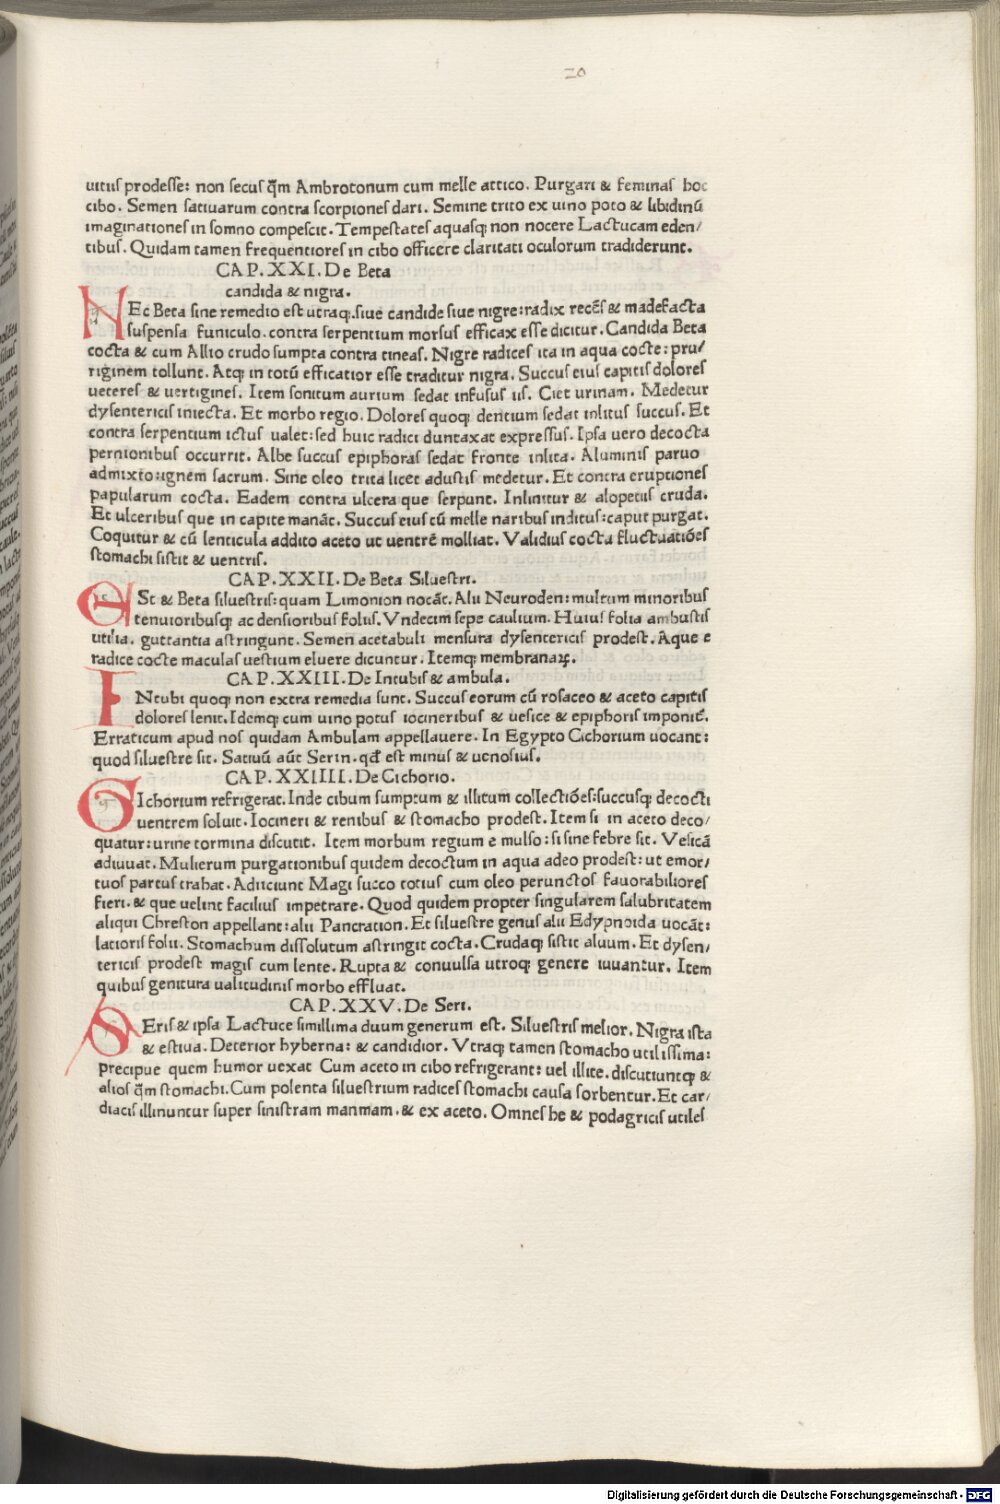 20
uitus prodesse: non secus q̃m Ambrotonum cum melle attico. Purgari & feminas hoc
cibo. Semen satiuarum contra scorpiones dari. Semine trito ex uino poto & libidinũ
imaginationes in somno compescit. Tempestates aquasq; non nocere Lactucam eden/
tibus. Quidam tamen frequentiores in cibo officere claritati oculorum tradiderunt.
CAP. XXI. De Beta
candida & nigra.
NEc Beta sine remedio est utraq; siue candide siue nigre: radix recẽs & madefacta
suspensa funiculo. contra serpentium morsus efficax esse dicitur. Candida Beta
cocta & cum Allio crudo sumpta contra tineas. Nigre radices ita in aqua cocte: pru/
riginem tollunt. Atq; in totũ efficatior esse traditur nigra. Succus eius capitis dolores
ueteres & uertigines. Item sonitum aurium sedat infusus iis. Ciet urinam. Medetur
dysentericis iniecta. Et morbo regio. Dolores quoq; dentium sedat inlitus succus. Et
contra serpentium ictus ualet: sed huic radici duntaxat expressus. Ipsa uero decocta
pernionibus occurrit. Albe succus epiphoras sedat fronte inlita. Aluminis paruo
admixto: ignem sacrum. Sine oleo trita licet adustis medetur. Et contra eruptiones
papularum cocta. Eadem contra ulcera que serpunt. Inlinitur & alopetiis cruda.
Et ulceribus que in capite manãt. Succus eius cũ melle naribus inditus: caput purgat.
Coquitur & cũ lenticula addito aceto ut uentrẽ molliat. Validius cocta fluctuatiões
stomachi sistit & uentris.
CAP. XXII. De Beta Siluestri.
ESt & Beta siluestris: quam Limonion nocãt. Alii Neuroden: multum minoribus
tenuioribusq; ac densioribus foliis. Vndecim sepe caulium. Huius folia ambustis
utilia. guttantia astringunt. Semen acetabuli mensura dysentericis prodest. Aque e
radice cocte maculas uestium eluere dicuntur. Itemq; membranaꝝ.
CAP. XXIII. De Intubis & ambula.
INtubi quoq; non extra remedia sunt. Succus eorum cũ rosaceo & aceto capitis
dolores lenit. Idemq; cum uino potus iocineribus & uesice & epiphoris imponit̃.
Erraticum apud nos quidam Ambulam appellauere. In Egypto Cichorium uocant:
quod siluestre sit. Satiuũ aũt Serin. qđ est minus & uenosius.
CAP. XXIIII. De Cichorio.
CIchorium refrigerat. Inde cibum sumptum & illitum collectiões: succusq; decocti
uentrem soluit. Iocineri & renibus & stomacho prodest. Item si in aceto deco/
quatur: urine tormina discutit. Item morbum regium e mulso: si sine febre sit. Vesicã
adiuuat. Mulierum purgationibus quidem decoctum in aqua adeo prodest: ut emor/
tuos partus trahat. Adiiciunt Magi succo totius cum oleo perunctos fauorabiliores
fieri. & que uelint facilius impetrare. Quod quidem propter singularem salubritatem
aliqui Chreston appellant: alii Pancration. Et siluestre genus alii Edypnoida uocãt:
latioris folii. Stomachum dissolutum astringit cocta. Crudaq; sistit aluum. Et dysen/
tericis prodest magis cum lente. Rupta & conuulsa utroq; genere iuuantur. Item
quibus genitura ualitudinis morbo effluat.
CAP. XXV. De Seri.
SEris & ipsa Lactuce simillima duum generum est. Siluestris melior. Nigra ista
& estiua. Deterior hyberna: & candidior. Vtraq; tamen stomacho utilissima:
precipue quem humor uexat Cum aceto in cibo refrigerant: uel illite. discutiuntq; &
alios q̃m stomachi. Cum polenta siluestrium radices stomachi causa sorbentur. Et car/
diacis illinuntur super sinistram manmam. & ex aceto. Omnes he & podagricis utiles
Digitalisierung gefördert durch die Deutsche Forschungsgemeinschaft - DFG